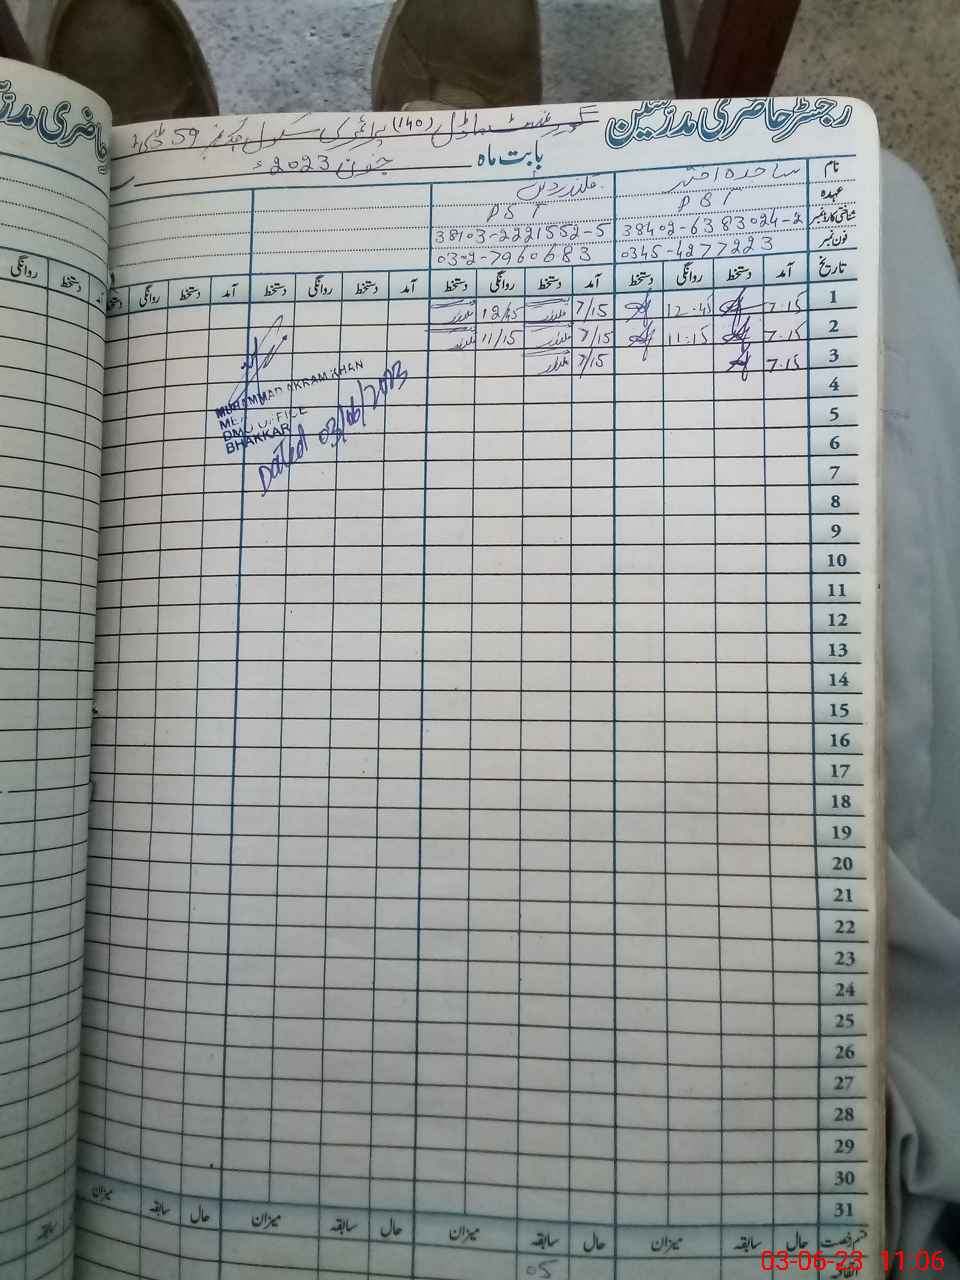 رجسٹر حاضری مدرسین
گورنمنٹ ماڈل (140) پرائمری سکول چک نمبر 59
بابت ماہ جون 2023ء
نام ساجدہ اختر قلندر دین
عہدہ PST PST
شناختی کارڈ نمبر 38402-6383024-2 38103-2221552-5
فون نمبر 0345-4277223 0302-7960683
تاریخ آمد دستخط روانگی دستخط آمد دستخط روانگی دستخط آمد دستخط روانگی دستخط آمد دستخط روانگی دستخط
1 7.15 12.45 7/15 قلندر 12/45 قلندر
2 7.15 11:15 7/15 قلندر 11/15 قلندر
3 7.15 7/15 قلندر
MUHAMMAD AKRAM KHAN
DMO OFFICE
BHAKKAR
Dated 03/06/2023
4
5
6
7
8
9
10
11
12
13
14
15
16
17
18
19
20
21
22
23
24
25
26
27
28
29
30
31
قسم رخصت حال سابقہ میزان حال سابقہ میزان حال سابقہ میزان حال سابقہ میزان
اتفاقیہ 05
حاضری مدرسین
روانگی دستخط آمد
سابقہ
03-06-23 11:06